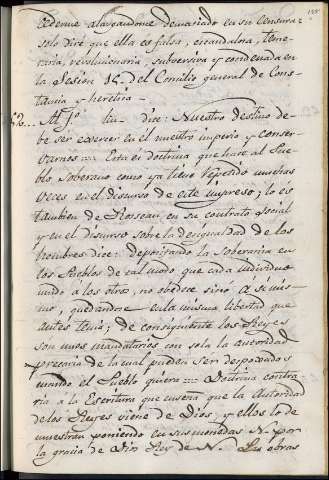 ederme alargandome demasiado en su Censura:
solo diré que ella es falsa, escandalosa, teme-
raria, revolucionaria, subversiva y condenada en
la Sesion 15. del Concilio general de Cons-
tancia y heretica.
Al fo. dice: Nuestro destino de-
be ser exercer en el nuestro imperio y conser-
varnos = Esta es doctrina que hace al Pue-
blo Soberano como ya llevo repetido muchas
veces en el discurso de este impreso; lo es
tambien de Roseau, en su contrato social
y en el discurso sobre la desigualdad de los
hombres dice: depositando la Soberania en
los Pueblos de tal modo que cada individuo
unido á los otros, no obedece sinó a se mis-
mo, quedandose en la misma libertad que
antes tenia; de consiguiente los Reyes
son unos mandatarios con sola la autoridad
precaria de la cual puedan ser despojados
cuando el Pueblo quiera = Doctrina contra-
ria á la Escritura que enseña que la Autoridad
de los Reyes viene de Dios, y ellos lo de-
muestran poniendo en sus monedas N. por
la gracia de Dios Rey de N. Las obras